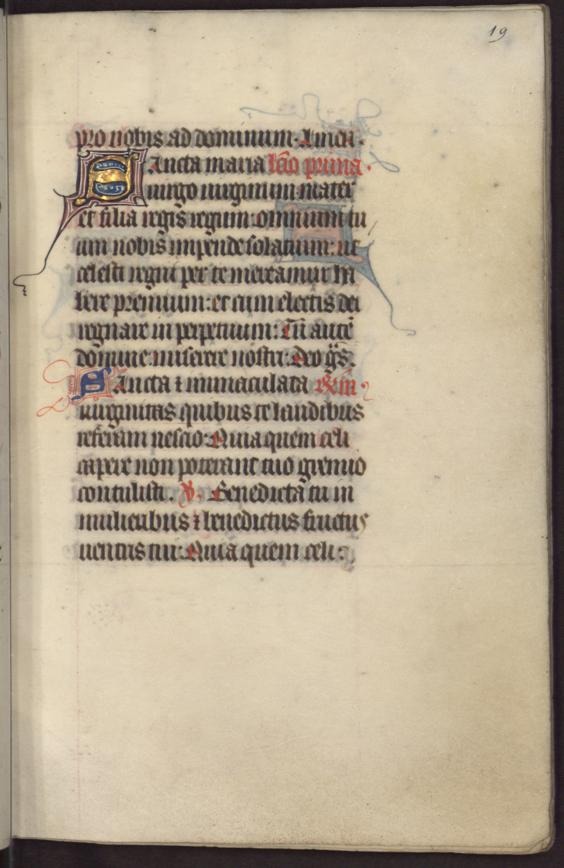 19
pro nobis ad dominum. Amen.
Sancta maria lc̄o prima.
uirgo uirginum mater
et filia regis regum: omnium tu
um nobis impende solatium: ut
celestis regni per te mereamur ha
bere premium: et cum electis dei
regnare in perpetuum: Tu aut̄e
domine miserere nostri: Deo gr̄s.
Sancta ⁊ inmaculata
uirginitas quibus te laudibus
referam nescio: Quia quem celi
capere non poterant tuo gremio
contulisti. V̄. Benedicta tu in
mulieribus ⁊ benedictus fructus
uentris tui: Quia quem celi: